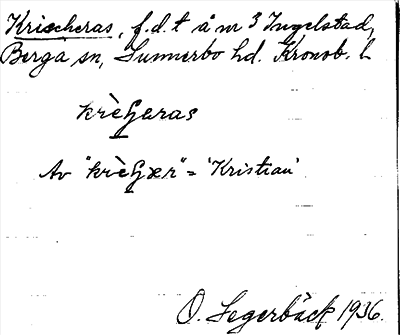 Krischeras, f.d.t å nr 3 Ingelstad,
Berga sn, Sunnerbo hd. Kronob. l
krèꞔeras
Av "krèꞔær" = 'Kristian'
O. Segerbäck 1936.